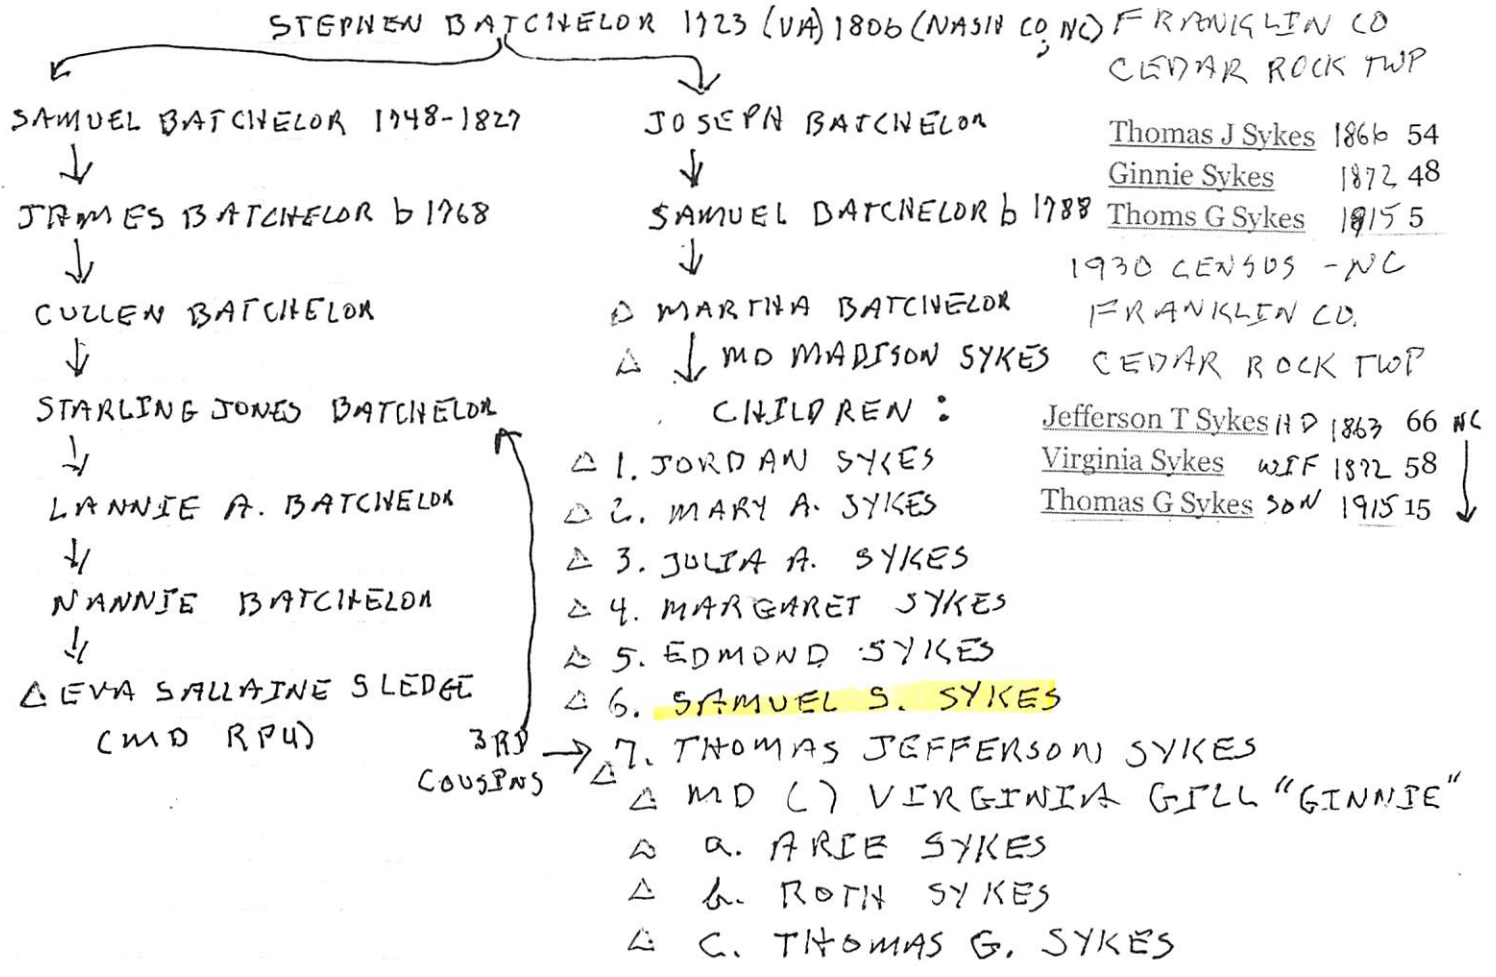 STEPHEN BATCHELOR 1723 (VA) 1806 (NASH CO, NC)
SAMUEL BATCHELOR 1748-1827
JAMES BATCHELOR b 1768
CULLEN BATCHELOR
STARLING JONES BATCHELOR
LANNIE A. BATCHELOR
NANNIE BATCHELOR
△ EVA SALLAINE SLEDGE
(MD RPU)
3RD
COUSINS
JOSEPH BATCHELOR
SAMUEL BATCHELOR b 1788
△ MARTHA BATCHELOR
△ MD MADISON SYKES
CHILDREN:
△ 1. JORDAN SYKES
△ 2. MARY A. SYKES
△ 3. JULIA A. SYKES
△ 4. MARGARET SYKES
△ 5. EDMOND SYKES
△ 6. SAMUEL S. SYKES
△ 7. THOMAS JEFFERSON SYKES
△ MD () VIRGINIA GILL "GINNIE"
△ a. ARIE SYKES
△ b. ROTH SYKES
△ C. THOMAS G. SYKES
FRANKLIN CO
CEDAR ROCK TWP
Thomas J Sykes 1866 54
Ginnie Sykes 1872 48
Thoms G Sykes 1915 5
1930 CENSUS - NC
FRANKLIN CO.
CEDAR ROCK TWP
Jefferson T Sykes HD 1863 66 NC
Virginia Sykes WIF 1872 58
Thomas G Sykes SON 1915 15